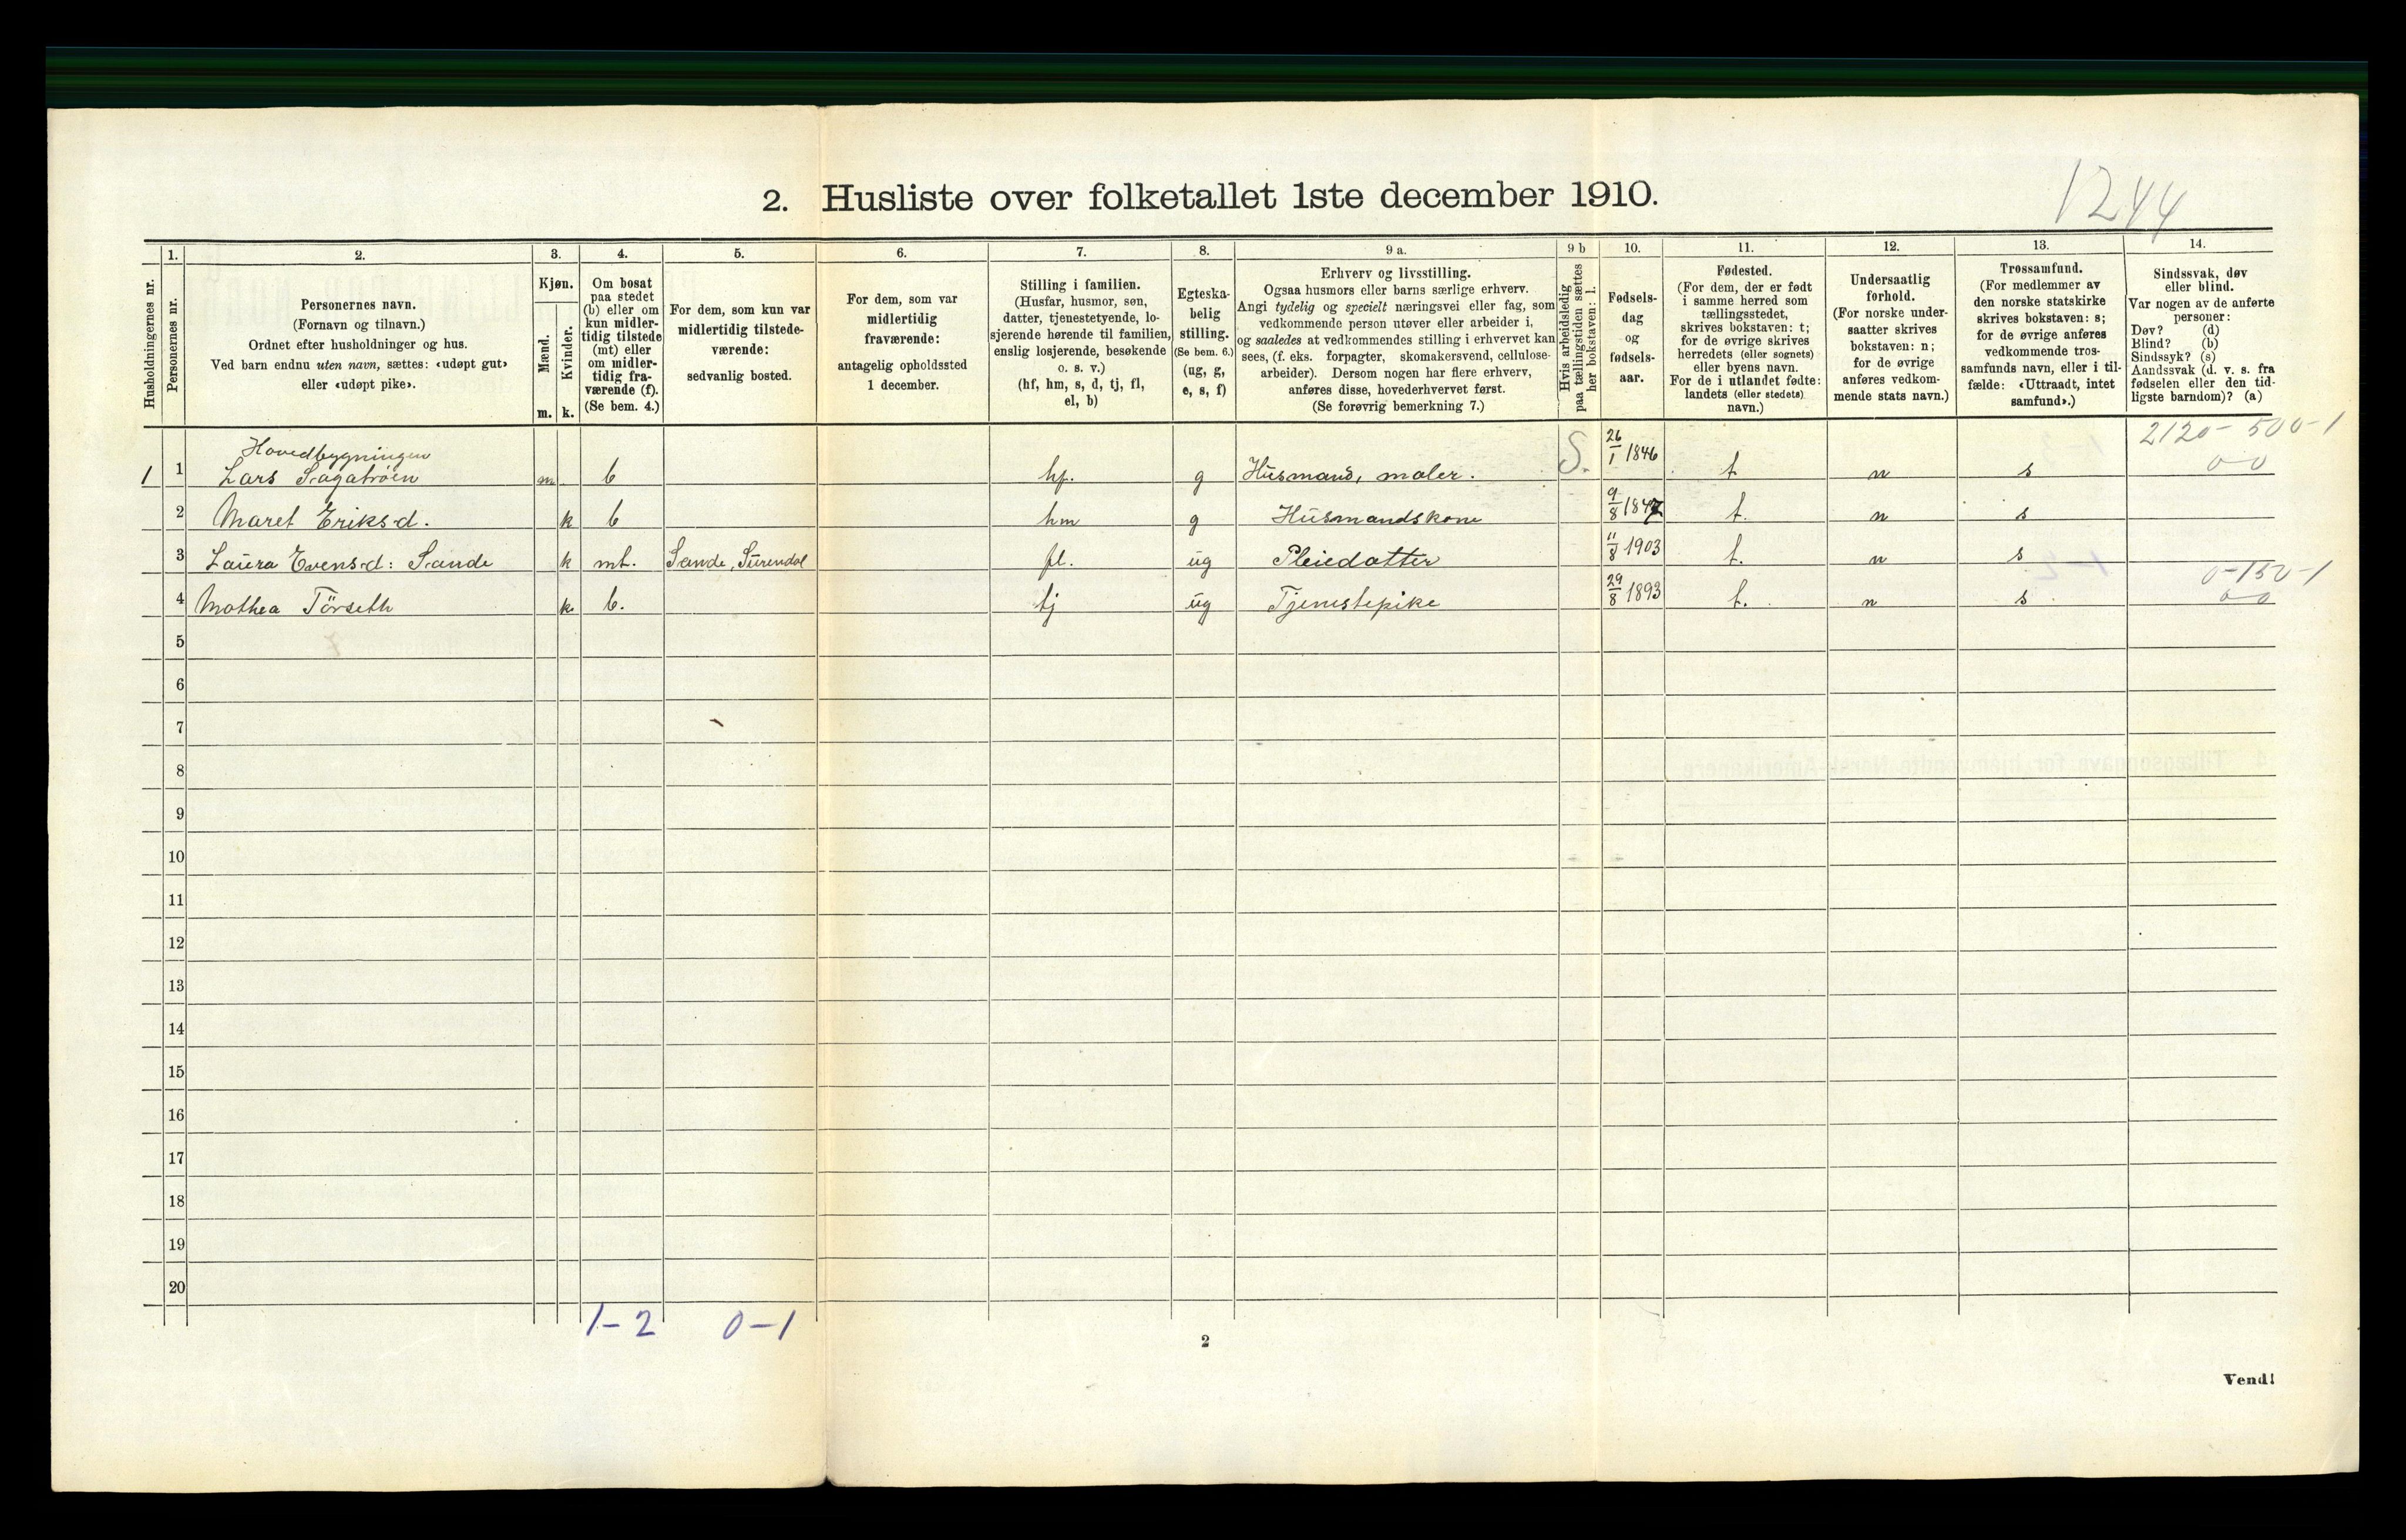 1244
2. Husliste over folketallet 1ste december 1910.
Husholdningernes nr.
1.
Personernes nr.
2.
Personernes navn.
(Fornavn og tilnavn.)
Ordnet efter husholdninger og hus.
Ved barn endnu uten navn, sættes: «udøpt gut»
eller «udøpt pike».
3.
Kjøn.
Mænd.
m.
Kvinder.
k.
4.
Om bosat
paa stedet
(b) eller om
kun midler-
tidig tilstede
(mt) eller
om midler-
tidig fra-
værende (f).
(Se bem. 4.)
5.
For dem, som kun var
midlertidig tilstede-
værende:
sedvanlig bosted.
6.
For dem, som var
midlertidig
fraværende:
antagelig opholdssted
1 december.
7.
Stilling i familien.
(Husfar, husmor, søn,
datter, tjenestetyende, lo-
sjerende hørende til familien,
enslig losjerende, besøkende
o. s. v.)
(hf, hm, s, d, tj, fl,
el, b)
8.
Egteska-
belig
stilling.
(Se bem. 6.)
(ug, g,
e, s, f)
9 a.
Erhverv og livsstilling.
Ogsaa husmors eller barns særlige erhverv.
Angi tydelig og specielt næringsvei eller fag, som
vedkommende person utøver eller arbeider i,
og saaledes at vedkommendes stilling i erhvervet kan
sees, (f. eks. forpagter, skomakersvend, cellulose-
arbeider). Dersom nogen har flere erhverv,
anføres disse, hovederhvervet først.
(Se forøvrig bemerkning 7.)
9 b
Hvis arbeidsledig
paa tællingstiden sættes
her bokstaven: l.
10.
Fødsels-
dag
og
fødsels-
aar.
11.
Fødested.
(For dem, der er født
i samme herred som
tællingsstedet,
skrives bokstaven: t;
for de øvrige skrives
herredets (eller sognets)
eller byens navn.
For de i utlandet fødte:
landets (eller stedets)
navn.)
12.
Undersaatlig
forhold.
(For norske under-
saatter skrives
bokstaven: n;
for de øvrige
anføres vedkom-
mende stats navn.)
13.
Trossamfund.
(For medlemmer av
den norske statskirke
skrives bokstaven: s;
for de øvrige anføres
vedkommende tros-
samfunds navn, eller i til-
fælde: «Uttraadt, intet
samfund».)
14.
Sindssvak, døv
eller blind.
Var nogen av de anførte
personer:
Døv? (d)
Blind? (b)
Sindssyk? (s)
Aandssvak (d. v. s. fra
fødselen eller den tid-
ligste barndom)? (a)
Hovedbygningen 2120-500-1
1 1 Lars Sagatrøen m b hf. g Husmand, maler. S. 26/1 1846 t n s 0-0
2 Maret Eriks-d. k b hm g Husmandskone 9/8 1847 t. n s
3 Laura Evens-d: Sande k mt. Sande, Surendal fl. ug Pleiedatter 11/8 1903 t. n s
0-150-1
4 Mothea Törseth k b. tj ug Tjenestepike 29/8 1893 t. n s 0-0
5
6
7
8
9
10
11
12
13
14
15
16
17
18
19
20
1-2 0-1
2
Vend!